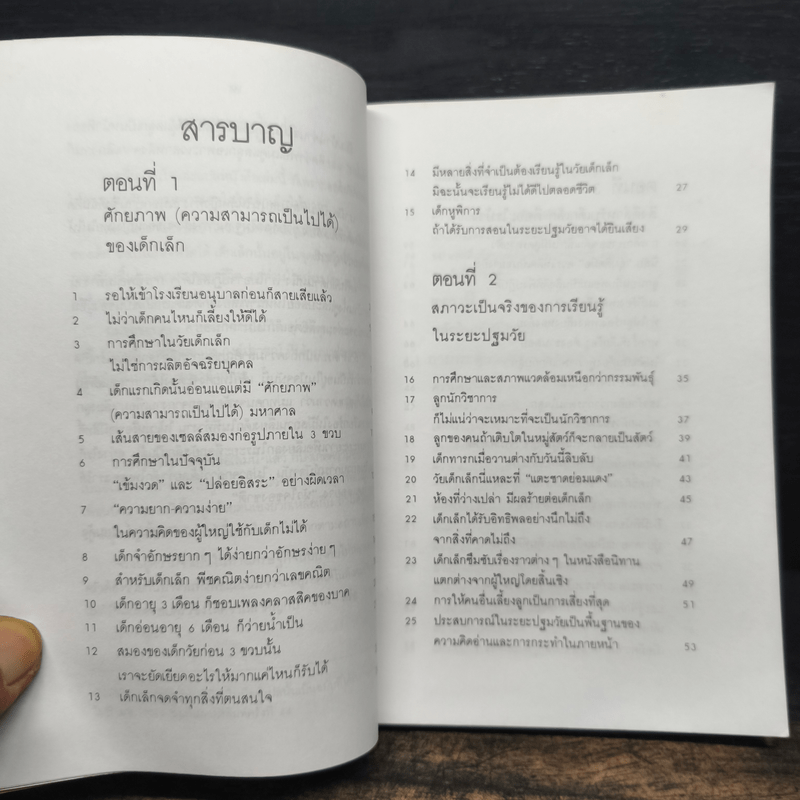 สารบาญ
ตอนที่ 1
ศักยภาพ (ความสามารถเป็นไปได้)
ของเด็กเล็ก
1 รอให้เข้าโรงเรียนอนุบาลก่อนก็สายเสียแล้ว
2 ไม่ว่าเด็กคนไหนก็เลี้ยงให้ดีได้
3 การศึกษาในวัยเด็กเล็ก
ไม่ใช่การผลิตอัจฉริยบุคคล
4 เด็กแรกเกิดนั้นอ่อนแอแต่มี “ศักยภาพ”
(ความสามารถเป็นไปได้) มหาศาล
5 เส้นสายของเซลล์สมองก่อรูปภายใน 3 ขวบ
6 การศึกษาในปัจจุบัน
“เข้มงวด” และ “ปล่อยอิสระ” อย่างผิดเวลา
7 “ความยาก-ความง่าย”
ในความคิดของผู้ใหญ่ใช้กับเด็กไม่ได้
8 เด็กจำอักษรยาก ๆ ได้ง่ายกว่าอักษรง่าย ๆ
9 สำหรับเด็กเล็ก พีชคณิตง่ายกว่าเลขคณิต
10 เด็กอายุ 3 เดือน ก็ชอบเพลงคลาสสิคของบาค
11 เด็กอ่อนอายุ 6 เดือน ก็ว่ายน้ำเป็น
12 สมองของเด็กวัยก่อน 3 ขวบนั้น
เราจะยัดเยียดอะไรให้มากแค่ไหนก็รับได้
13 เด็กเล็กจดจำทุกสิ่งที่ตนสนใจ
14 มีหลายสิ่งที่จำเป็นต้องเรียนรู้ในวัยเด็กเล็ก
มิฉะนั้นจะเรียนรู้ไม่ได้ดีไปตลอดชีวิต 27
15 เด็กหูพิการ
ถ้าได้รับการสอนในระยะปฐมวัยอาจได้ยินเสียง 29
ตอนที่ 2
สภาวะเป็นจริงของการเรียนรู้
ในระยะปฐมวัย
16 การศึกษาและสภาพแวดล้อมเหนือกว่ากรรมพันธุ์ 35
17 ลูกนักวิชาการ
ก็ไม่แน่ว่าจะเหมาะที่จะเป็นนักวิชาการ 37
18 ลูกของคนถ้าเติบโตในหมู่สัตว์ก็จะกลายเป็นสัตว์ 39
19 เด็กทารกเมื่อวานต่างกับวันนี้ลิบลับ 41
20 วัยเด็กเล็กนี่แหละที่ “แตะชาดย่อมแดง” 43
21 ห้องที่ว่างเปล่า มีผลร้ายต่อเด็กเล็ก 45
22 เด็กเล็กได้รับอิทธิพลอย่างนึกไม่ถึง
จากสิ่งที่คาดไม่ถึง 47
23 เด็กเล็กซึมซับเรื่องราวต่าง ๆ ในหนังสือนิทาน
แตกต่างจากผู้ใหญ่โดยสิ้นเชิง 49
24 การให้คนอื่นเลี้ยงลูกเป็นการเสี่ยงที่สุด 51
25 ประสบการณ์ในระยะปฐมวัยเป็นพื้นฐานของ
ความคิดอ่านและการกระทำในภายหน้า 53